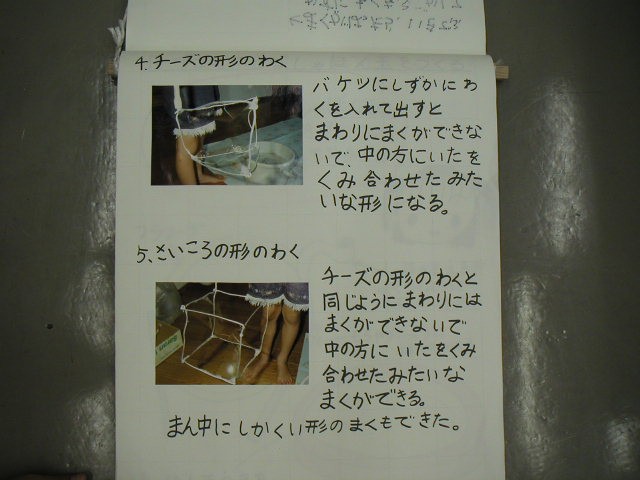 4.チーズの形のわく
バケツにしずかにわ
くを入れて出すと
まわりにまくができな
いで、中の方にいたを
くみ合わせたみた
いな形になる。
5、さいころの形のわく
チーズの形のわくと
同じようにまわりには
まくができないで
中の方にいたをくみ
合わせたみたいな
まくができる。
まん中にしかくい形のまくもできた。